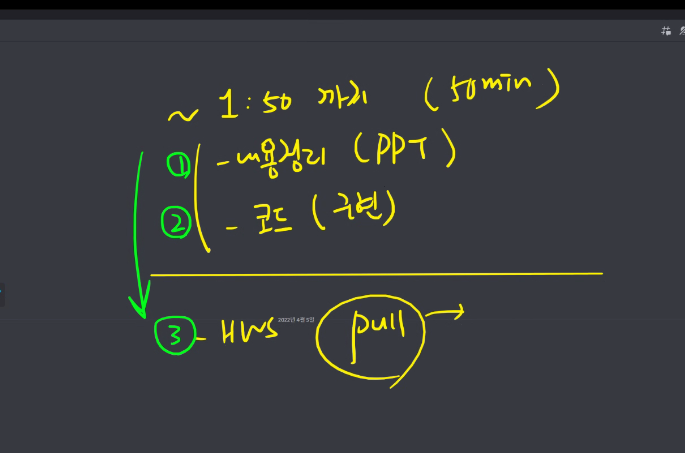 ~ 1:50 까지 (50min)
① - 내용정리 (PPT)
② - 코드 (구현)
③ - HWS 2022년 4월 5일 pull →